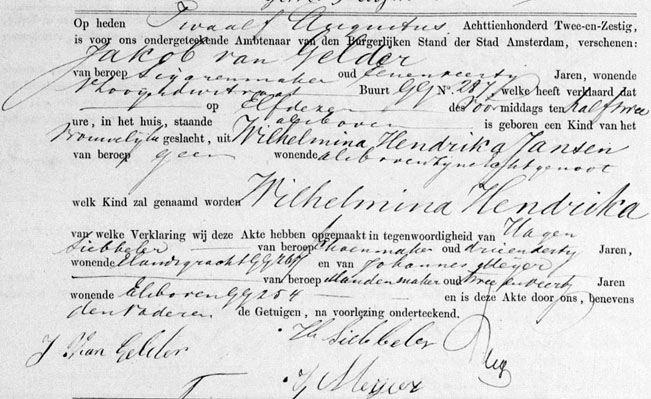 Op heden Twaalf Augustus Achttienhonderd Twee-en-Zestig,
is voor ons ondergeteekende Ambtenaar van den Burgerlijken Stand der Stad Amsterdam, verschenen:
Jakob van Gelder
van beroep Sigarenmaker oud Jaren, wonende
Buurt GG No. 287, welke heeft verklaard dat
op Elfdezer des Voormiddags ten half twee
ure, in het huis, staande alsboven is geboren een Kind van het
Vrouwelijk geslacht, uit Wilhelmina Hendrika Jansen
van beroep geen wonende alsboven zijne echtgenoot
welk Kind zal genaamd worden Wilhelmina Hendrika
van welke Verklaring wij deze Akte hebben opgemaakt in tegenwoordigheid van Hagen
Siebbeler van beroep Schoenmaker oud drieenveertig Jaren,
wonende Elandsgracht GG 267 en van Johannes Meijer
van beroep Mandenmaker oud tweeenveertig Jaren
wonende Alsboven GG 254 en is deze Akte door ons, benevens
den vader en de Getuigen, na voorlezing onderteekend.
J Van Gelder H Siebbeler
J Meijer